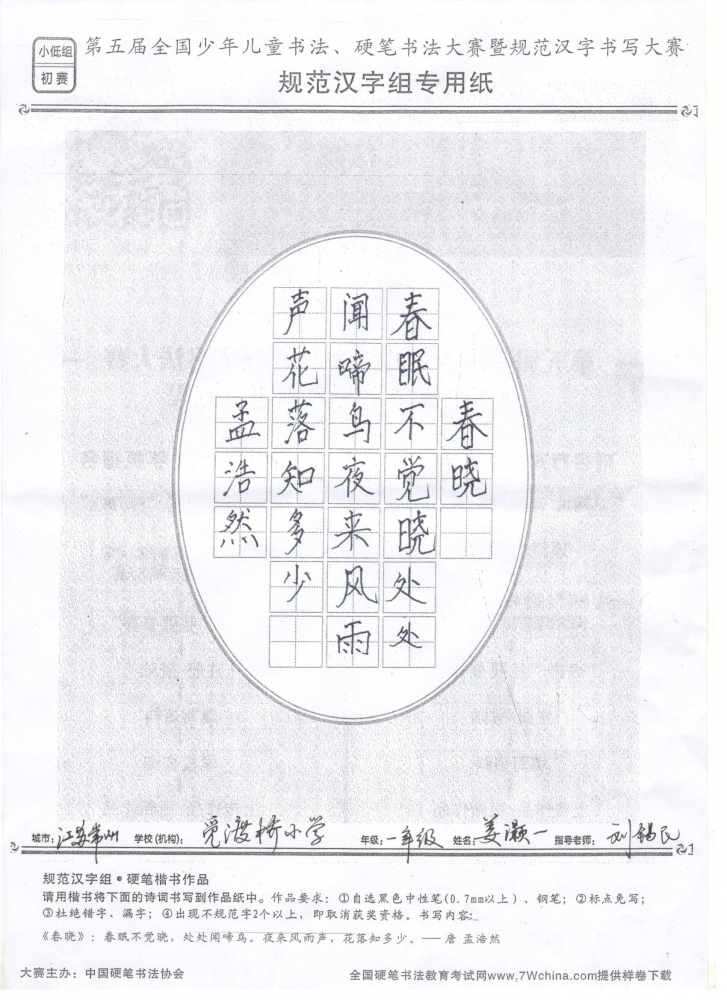 小低组
初赛
第五届全国少年儿童书法、硬笔书法大赛暨规范汉字书写大赛
规范汉字组专用纸
春晓
春眠不觉晓处处
闻啼鸟夜来风雨
声花落知多少
孟浩然
城市：江苏常州 学校(机构)：觅渡桥小学 年级：一年级 姓名：姜灏一 指导老师：刘锡民
规范汉字组●硬笔楷书作品
请用楷书将下面的诗词书写到作品纸中。作品要求：①自选黑色中性笔(0.7mm以上)、钢笔；②标点免写；
③杜绝错字、漏字；④出现不规范字2个以上，即取消获奖资格。书写内容：
《春晓》：春眠不觉晓，处处闻啼鸟。夜来风雨声，花落知多少。—— 唐 孟浩然
大赛主办：中国硬笔书法协会 全国硬笔书法教育考试网www.7Wchina.com提供样卷下载